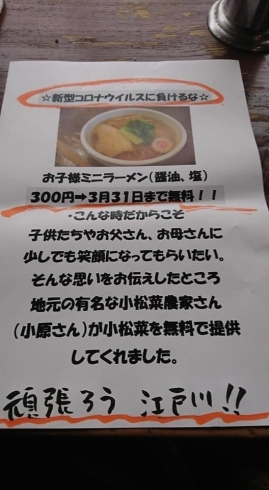 ☆新型コロナウイルスに負けるな☆
お子様ミニラーメン(醤油、塩)
300円➡3月31日まで無料!!
・こんな時だからこそ
子供たちやお父さん、お母さんに
少しでも笑顔になってもらいたい。
そんな思いをお伝えしたところ
地元の有名な小松菜農家さん
(小原さん)が小松菜を無料で提供
してくれました。
頑張ろう 江戸川!!